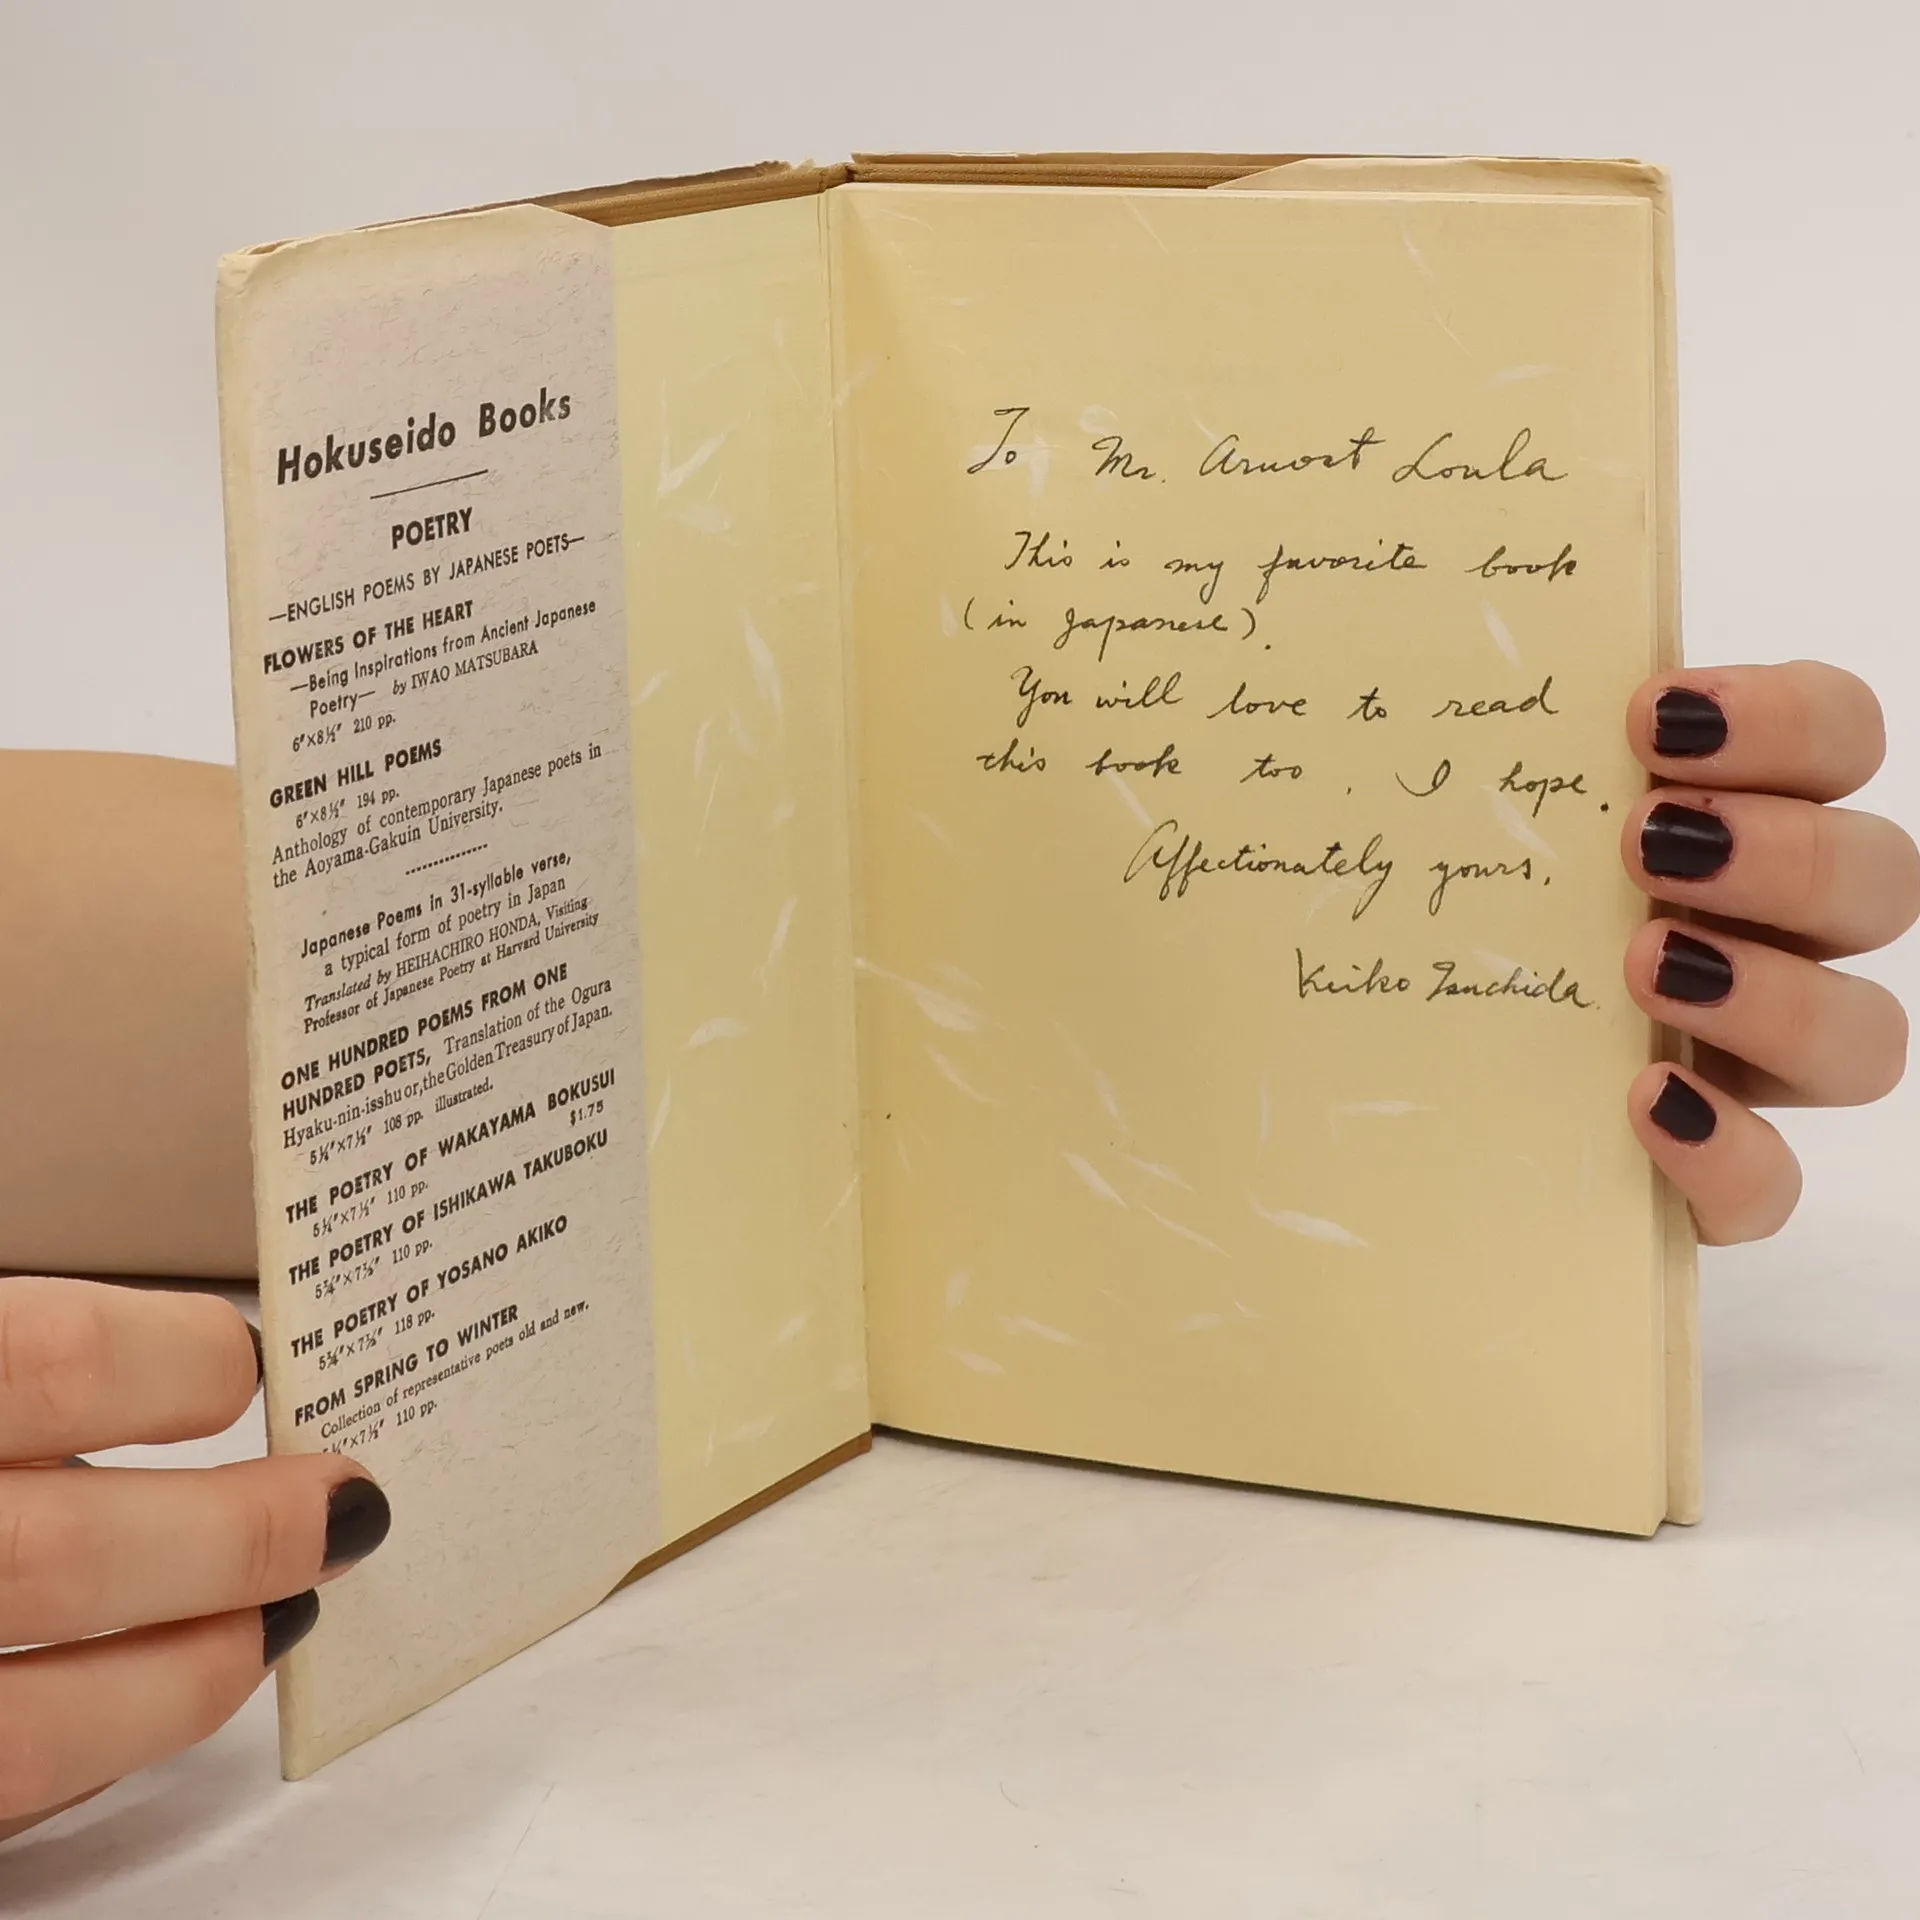 Hokuseido Books
POETRY
—ENGLISH POEMS BY JAPANESE POETS—
FLOWERS OF THE HEART
—Being Inspirations from Ancient Japanese
Poetry— by IWAO MATSUBARA
6"×8½" 210 pp.
GREEN HILL POEMS
6"×8½" 194 pp.
Anthology of contemporary Japanese poets in
the Aoyama-Gakuin University.
Japanese Poems in 31-syllable verse,
a typical form of poetry in Japan
Translated by HEIHACHIRO HONDA, Visiting
Professor of Japanese Poetry at Harvard University
ONE HUNDRED POEMS FROM ONE
HUNDRED POETS, Translation of the Ogura
Hyaku-nin-isshu or, the Golden Treasury of Japan.
5¼"×7½" 108 pp. illustrated.
THE POETRY OF WAKAYAMA BOKUSUI
5¼"×7½" 110 pp. $1.75
THE POETRY OF ISHIKAWA TAKUBOKU
5¾"×7½" 110 pp.
THE POETRY OF YOSANO AKIKO
5¾"×7½" 118 pp.
FROM SPRING TO WINTER
Collection of representative poets old and new.
×7½" 110 pp.
To Mr. Arnost Loula
This is my favorite book
(in Japanese).
You will love to read
this book too, I hope.
Affectionately yours,
Keiko Tsuchida.